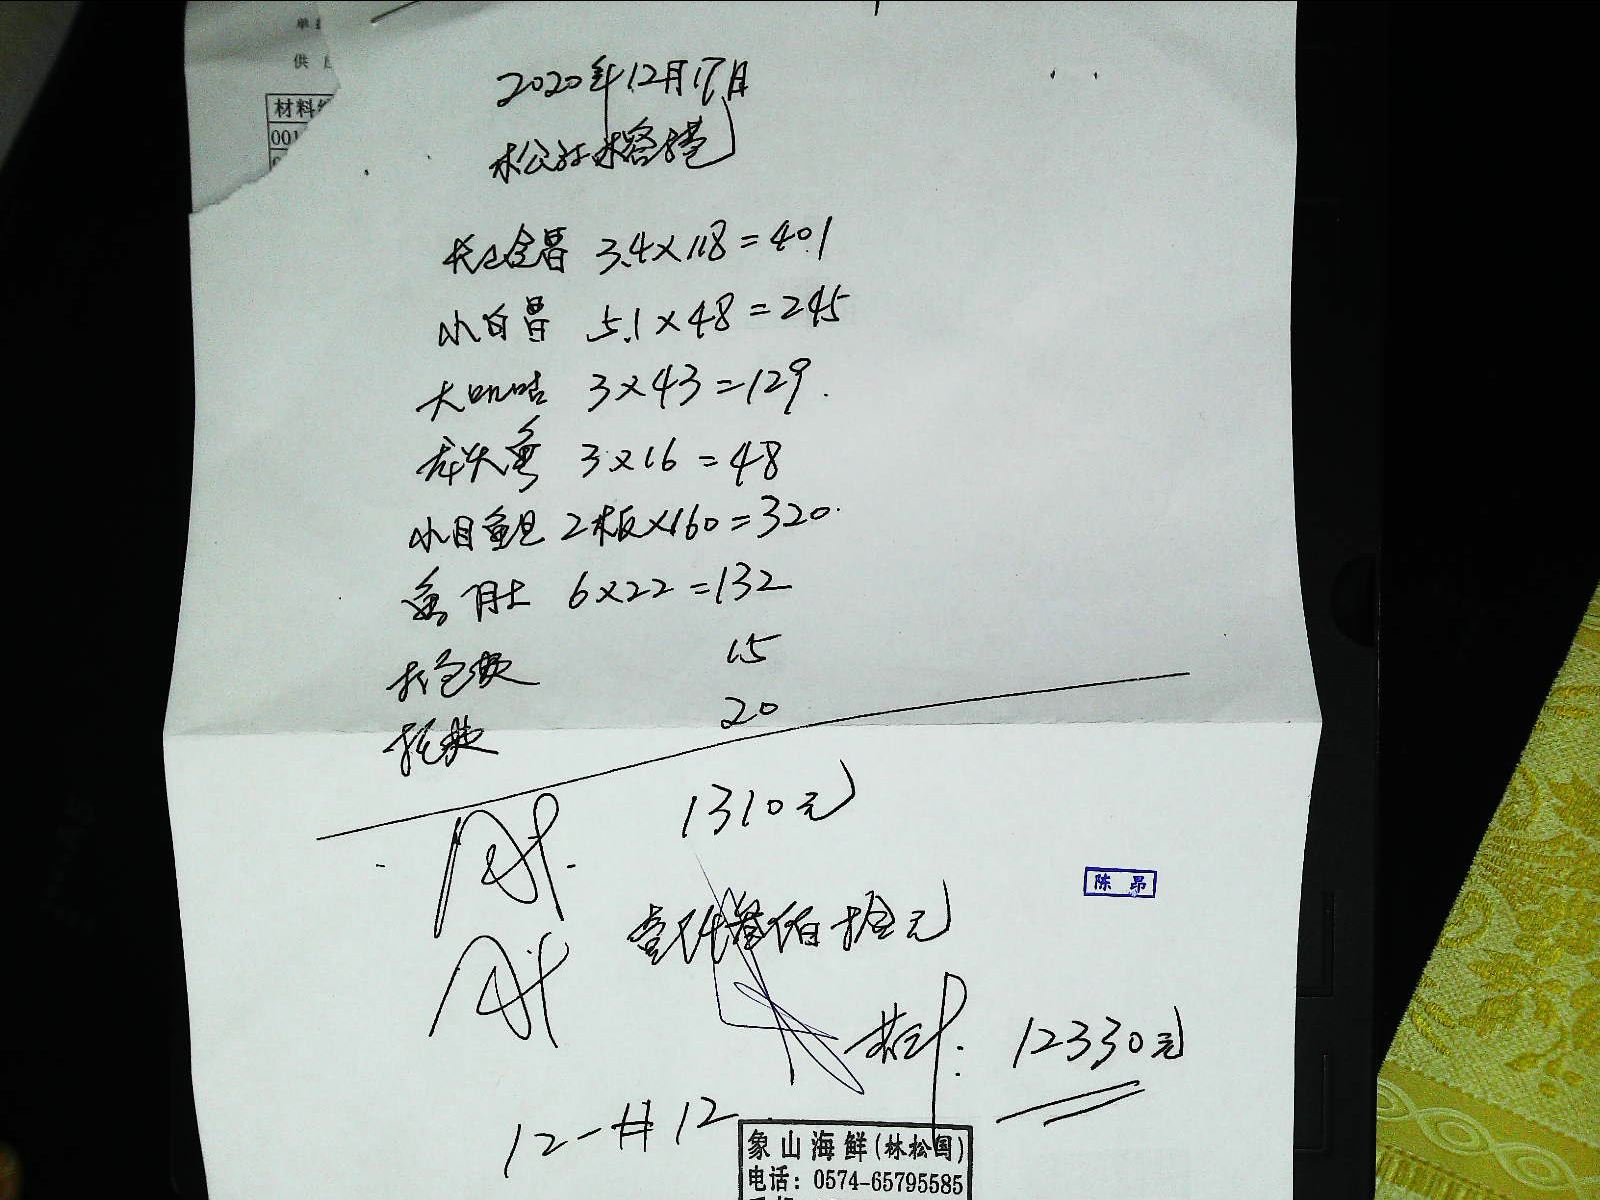 单
供
材料
001
2020年12月17日
松公社榕港
长山金昌 3.4×118=401
小白昌 5.1×48=245
大叽咕 3×43=129.
龙头鱼 3×16=48
小目鱼旦 2板×160=320
鱼肚 6×22=132
打包费 15
托费 20
1310元
陈昂
壹仟叁佰拾元
共计. 12330元
12-#12
象山海鲜(林松国)
电话：0574-65795585